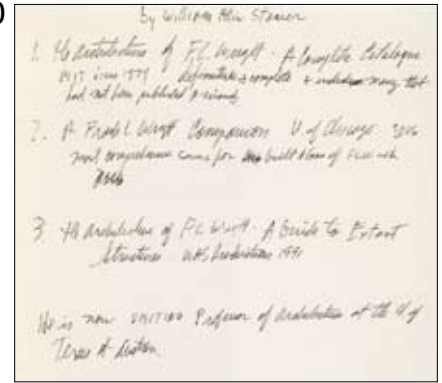 by William Allin Storrer
1. The Architecture of F.L. Wright. A Complete Catalogue
MIT 1979 definitive & complete & includes many that
had not been published previously
2. A Frank L Wright Companion U of Chicago
most comprehensive for built plans of FLW with
3. The Architecture of FL Wright. A Guide to Extant
Structures WAS Productions 1991
He is now visiting Professor of Architecture at the U of
Texas at Austin.